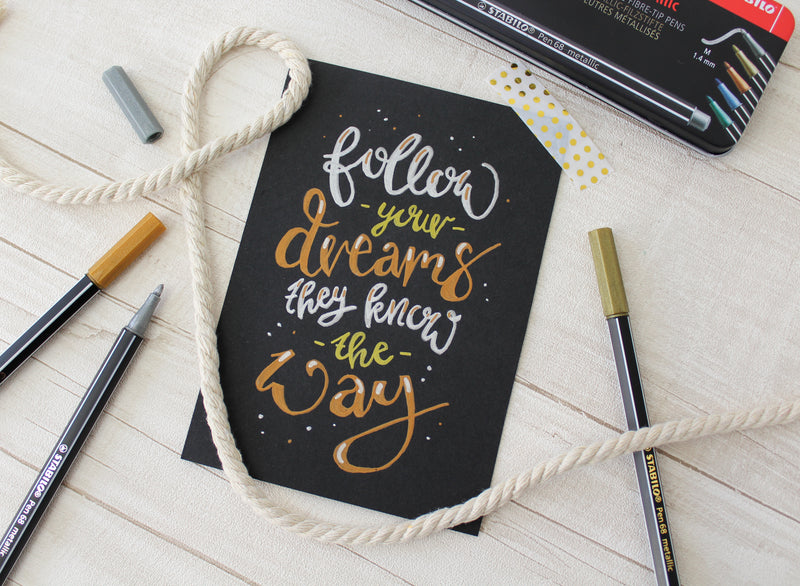 follow
- your -
dreams
they know
- the -
way
STABILO
FIBRE-TIP PENS
METALLISÉS
STABILO® Pen 68 metallic
M
1.4 mm
STABILO® Pen 68 metallic
STABILO® Pen 68 metallic